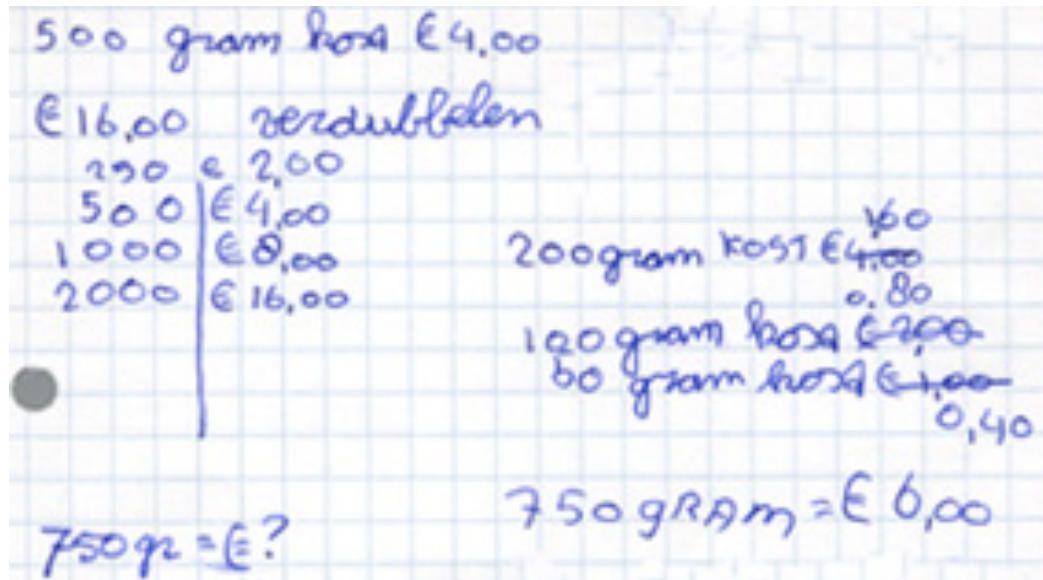 500 gram kost €4,00
€16,00 verdubbelen
250 € 2,00
500 €4,00
1000 €8,00
2000 €16,00
750 gr = €?
1,60
200 gram KOST €4,00
0,80
100 gram kost €2,00
50 gram kost €1,00
0,40
750 gRAm = € 6,00